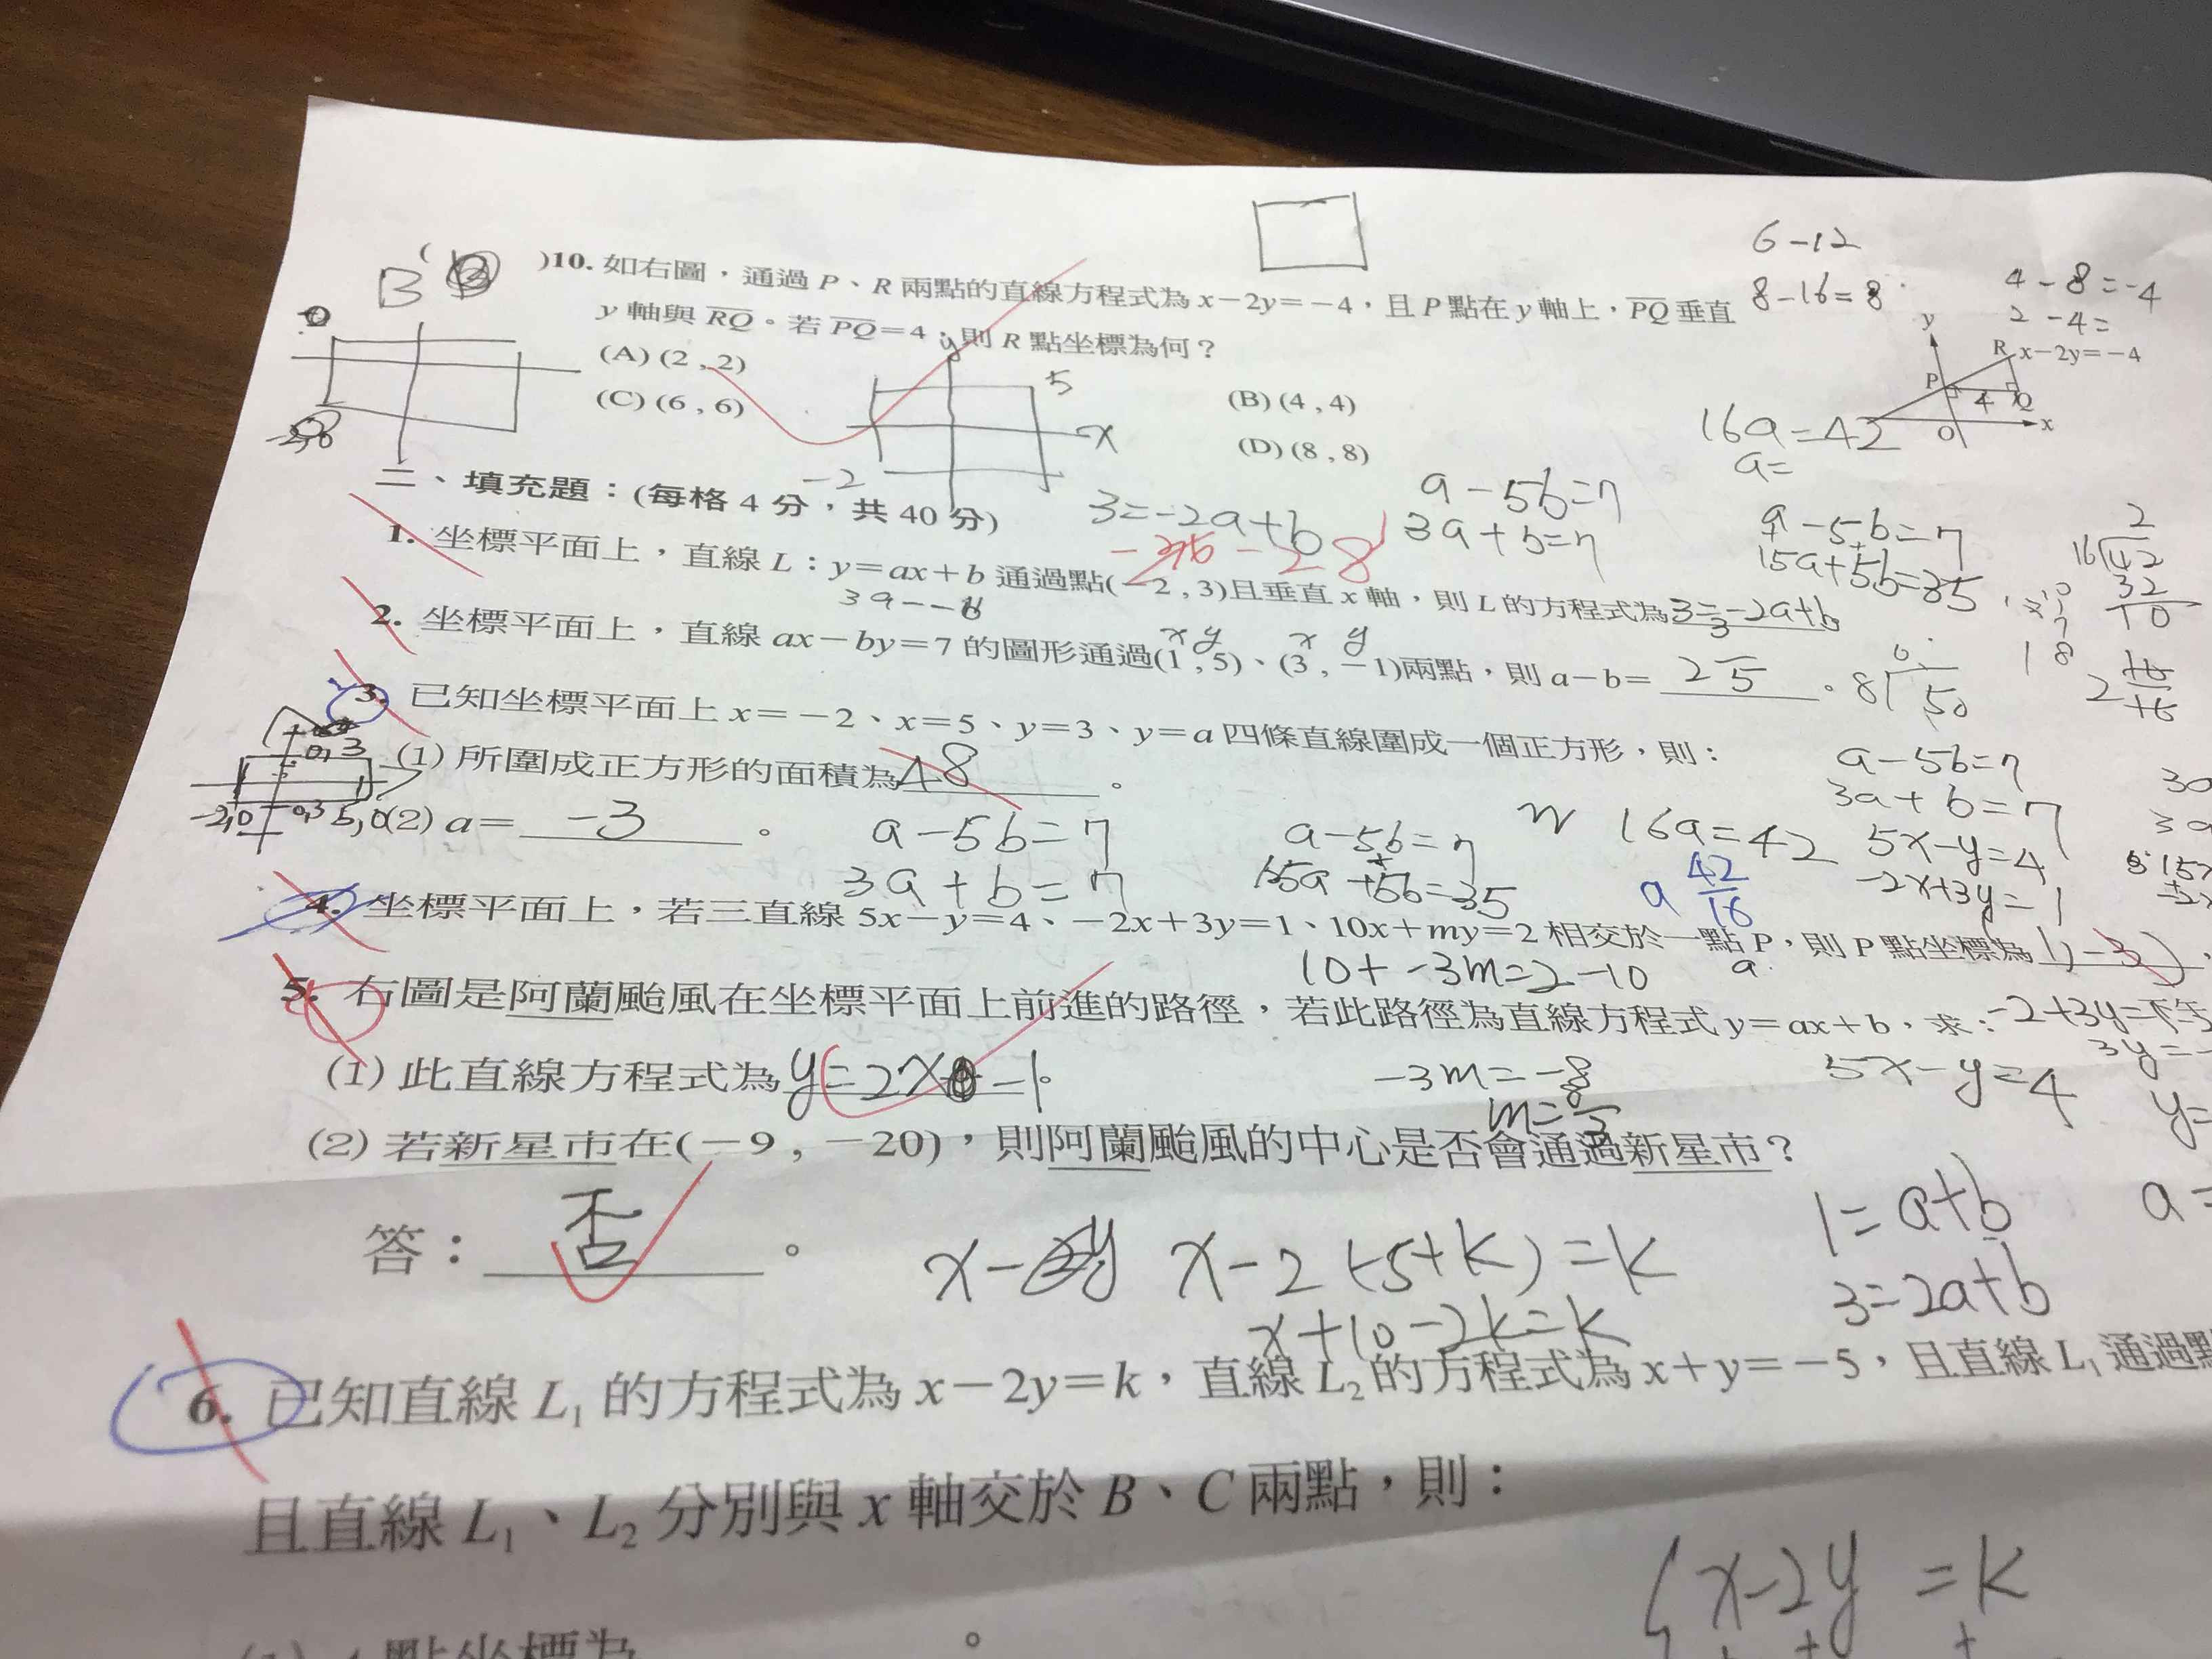 6-12
8-16=8
4-8=-4
2-4=
B
( B )10. 如右圖，通過 P、R 兩點的直線方程式為 x－2y＝－4，且 P 點在 y 軸上，PQ 垂直
y 軸與 RQ。若 PQ＝4，則 R 點坐標為何？
(A) (2 , 2)
(B) (4 , 4)
(C) (6 , 6)
(D) (8 , 8)
y
R x－2y＝－4
P
4 Q
O x
y
5
x
-2
16a=42
a=
二、填充題：(每格 4 分，共 40 分)
3=-2a+b
a-5b=7
3a+b=7
a-5b=7
15a+5b=35
1. 坐標平面上，直線 L：y＝ax＋b 通過點(－2 , 3)且垂直 x 軸，則 L 的方程式為 3=-2a+b
x y x y
2. 坐標平面上，直線 ax－by＝7 的圖形通過(1 , 5)、(3 , －1)兩點，則 a－b＝ 。
3. 已知坐標平面上 x＝－2、x＝5、y＝3、y＝a 四條直線圍成一個正方形，則：
(1) 所圍成正方形的面積為 48 。
(2) a＝ -3 。
a-5b=7
3a+b=7
a-5b=7
15a+5b=35
16a=42
a 42/16
a-5b=7
3a+b=7
5x-y=4
-2x+3y=1
4. 坐標平面上，若三直線 5x－y＝4、－2x＋3y＝1、10x＋my＝2 相交於一點 P，則 P 點坐標為 1,-3
10+-3m=2-10
5. 右圖是阿蘭颱風在坐標平面上前進的路徑，若此路徑為直線方程式 y＝ax＋b，求：
(1) 此直線方程式為 y=2x-1。
-3m=-8
m=8/3
5x-y=4
(2) 若新星市在(－9 , －20)，則阿蘭颱風的中心是否會通過新星市？
答： 否 。
x-2y x-2(-5+k)=k
x+10-2k=k
1=a+b
3=2a+b
6. 已知直線 L1 的方程式為 x－2y＝k，直線 L2 的方程式為 x＋y＝－5，且直線 L1 通過
且直線 L1、L2 分別與 x 軸交於 B、C 兩點，則：
x-2y=k